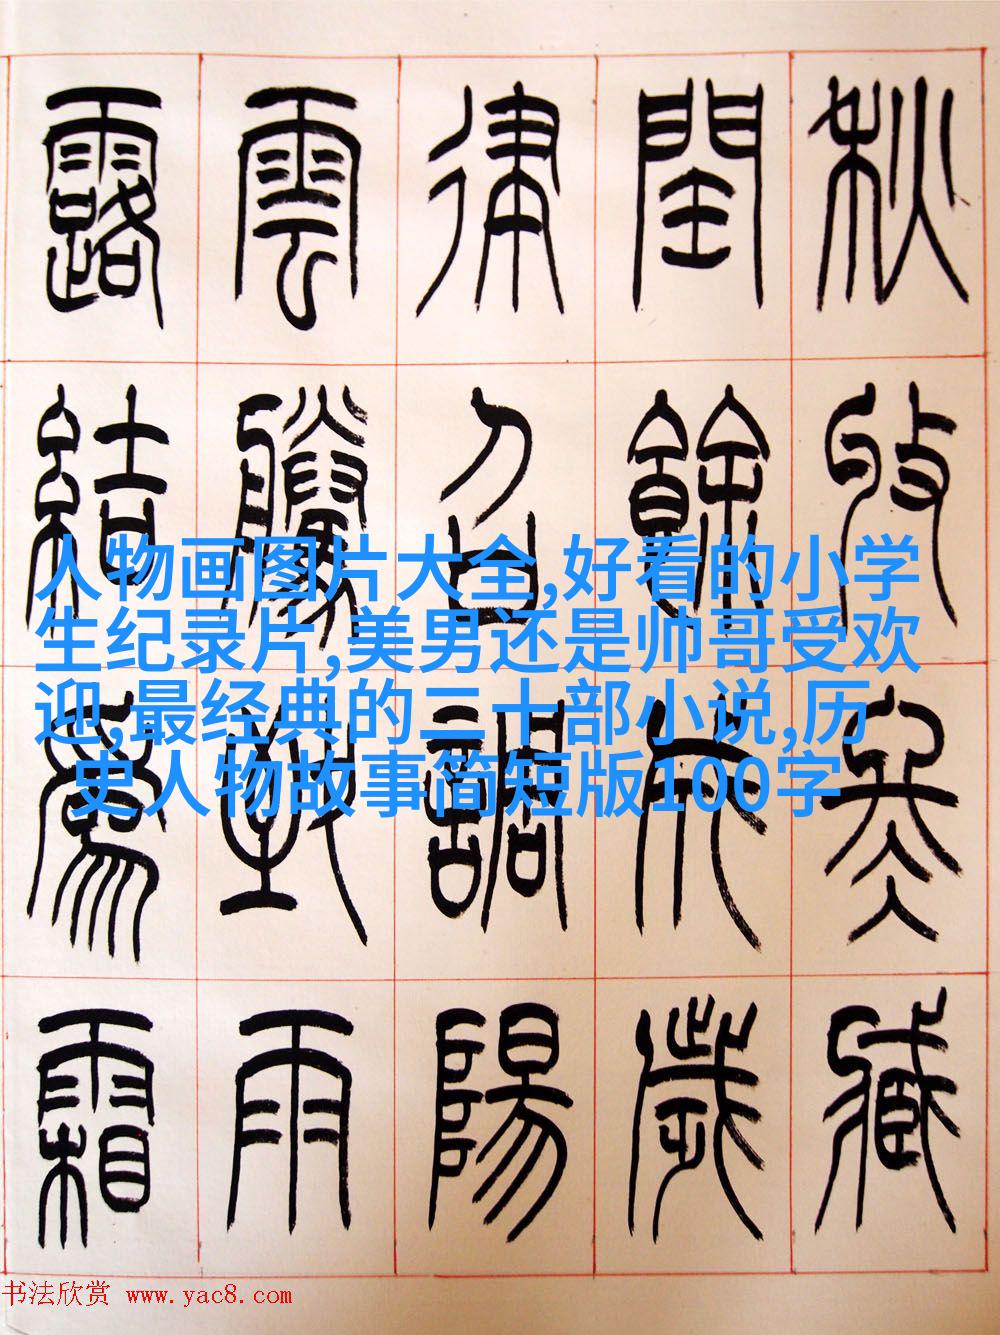 秋收冬臧
閏餘成歲
律召調陽
雲騰致雨
露結爲霜
人物画图片大全,好看的小学
生纪录片,美男还是帅哥受欢
迎,最经典的三十部小说,历
史人物故事简短版100字
书法欣赏 www.yac8.com